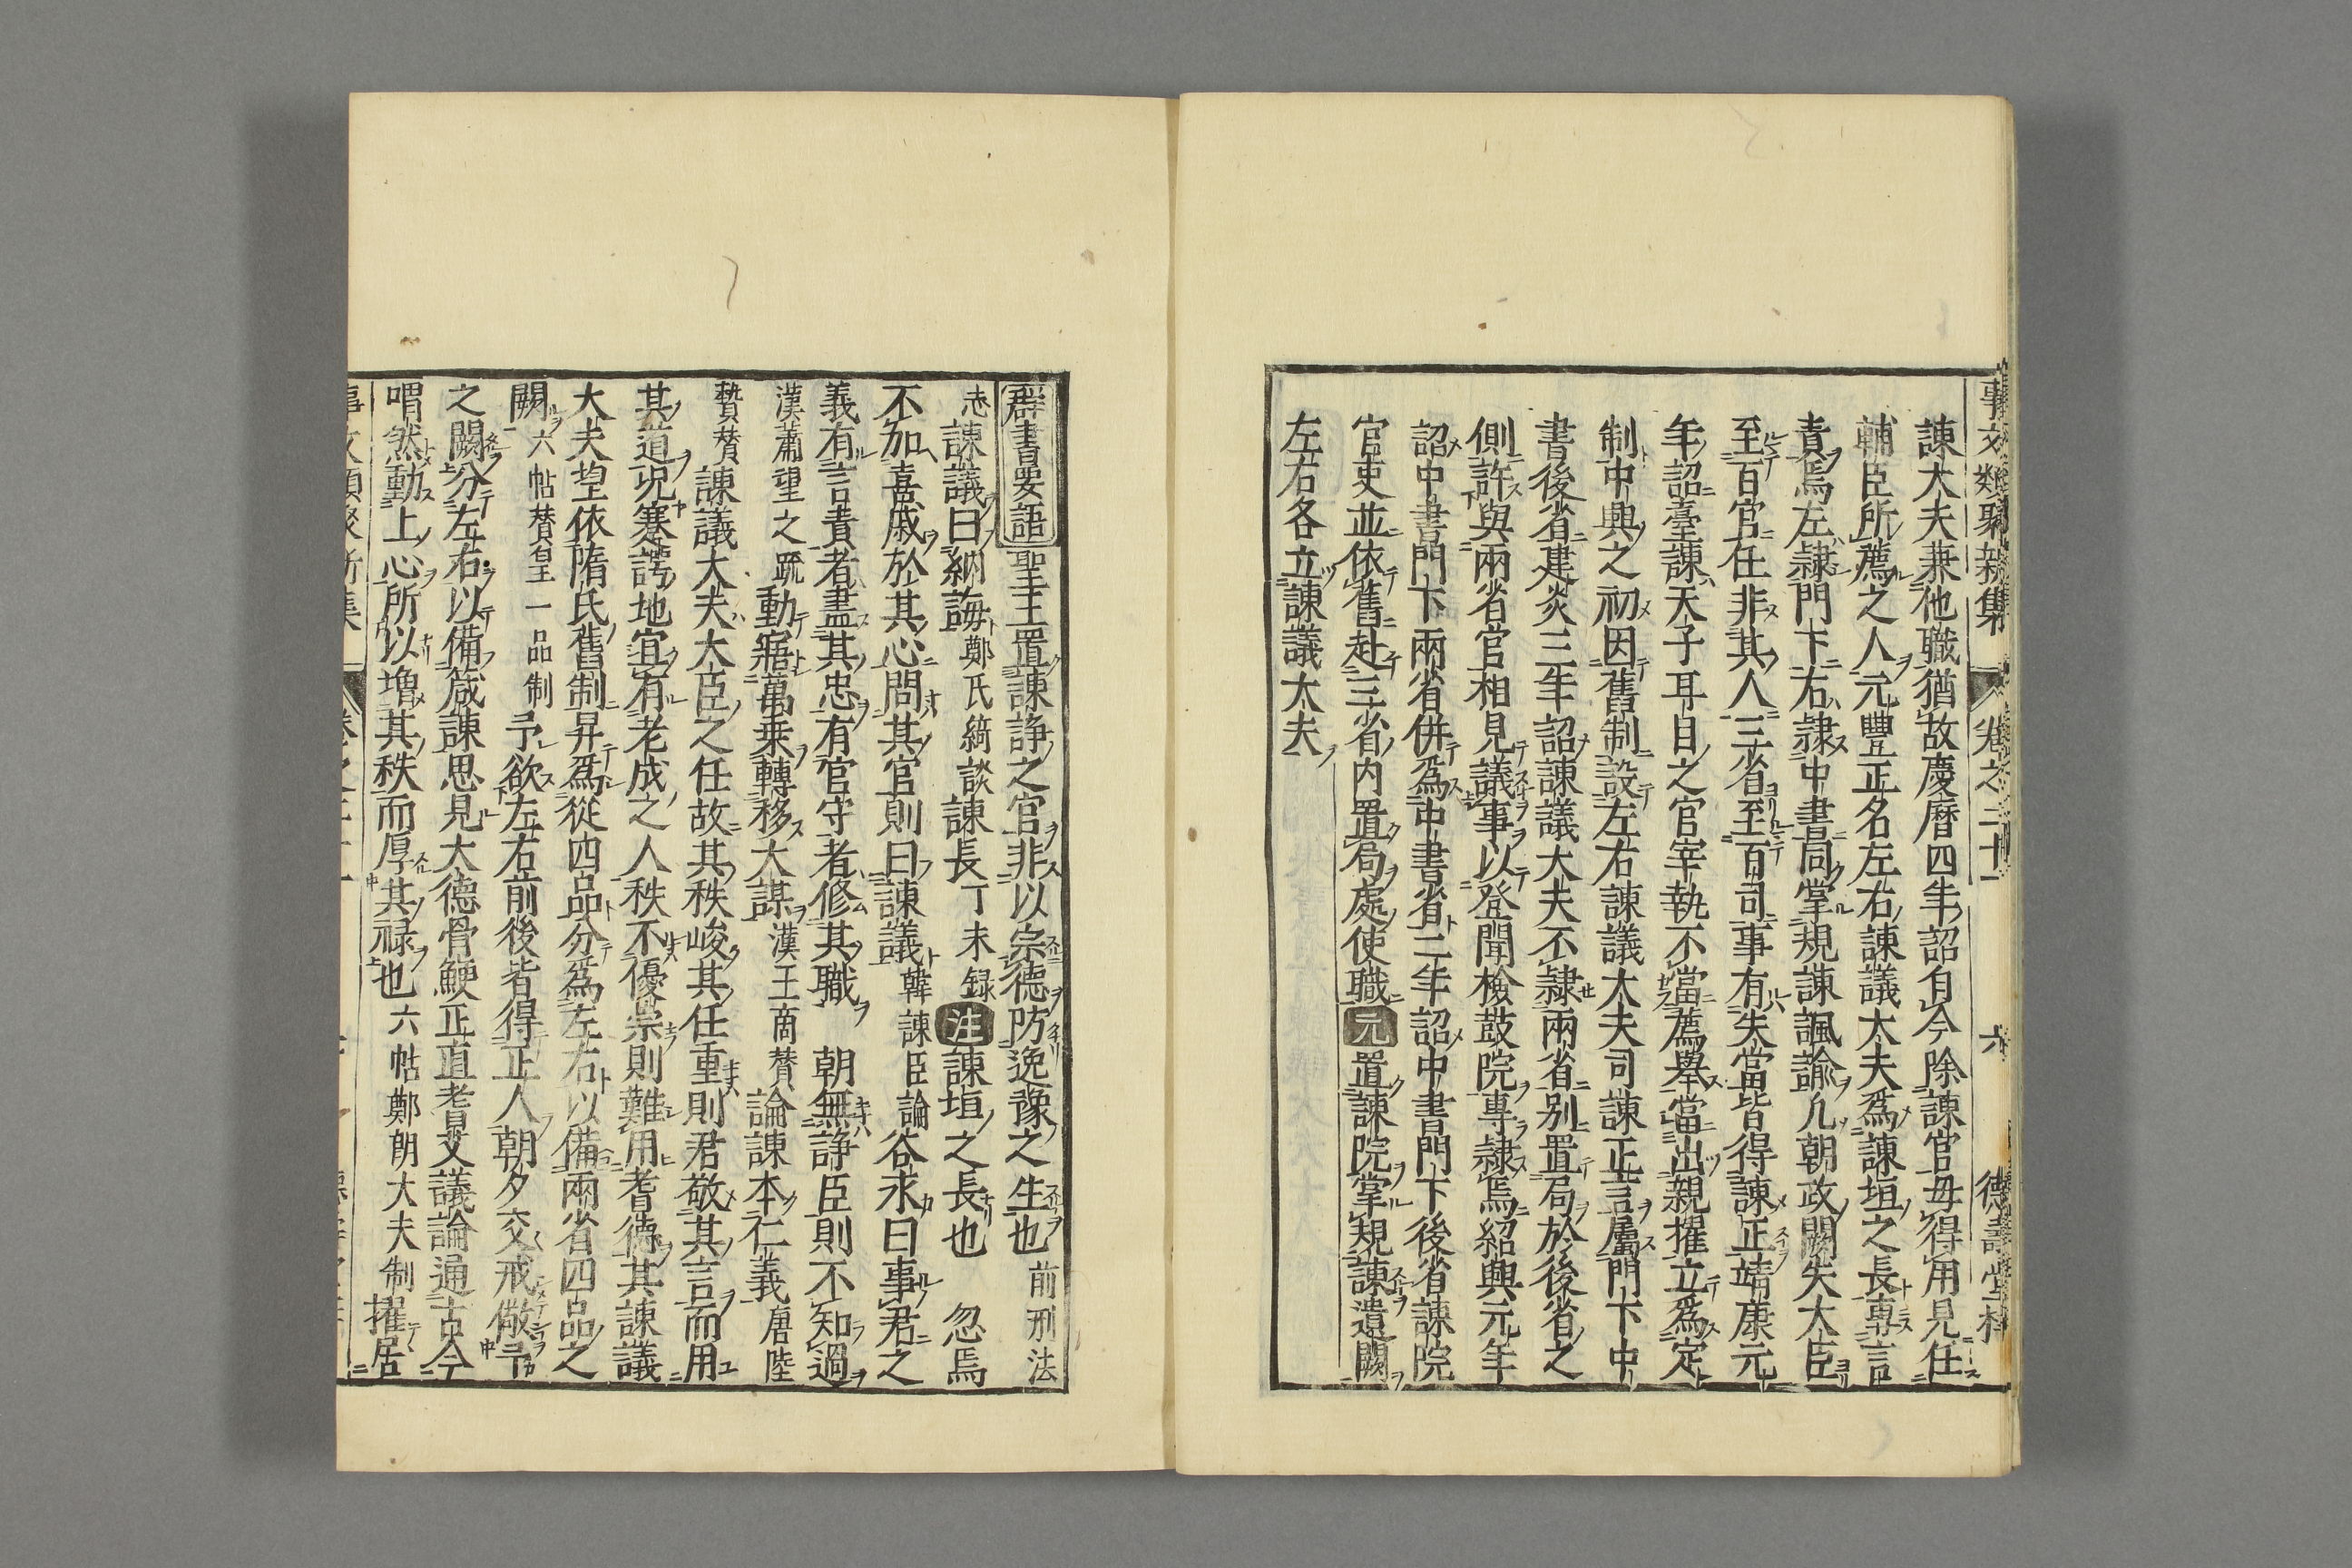 事文類聚新集 卷之二十一 六 德壽堂梓
諫大夫兼他職猶故慶曆四年詔自今除諫官毋得用見任
輔臣所薦之人元豐正名左右諫議大夫爲諫垣之長專言
責焉左隷門下右隷中書同掌規諫諷諭凡朝政闕失大臣
至百官任非其人三省至百司事有失當皆得諫正靖康元
年詔臺諫天子耳目之官宰執不當薦舉當出親擢立爲定
制中興之初因舊制設左右諫議大夫司諫正言屬門下中
書後省建炎三年詔諫議大夫不隷兩省别置局於後省之
側許與兩省官相見議事以登聞檢鼓院專隷焉紹興元年
詔中書門下兩省併爲中書省二年詔中書門下後省諫院
官吏並依舊赴三省内置局處使職元置諫院掌規諫遺闕
左右各立諫議大夫
群書要語聖王置諫諍之官非以宗德防逸豫之生也前刑法
志諫議曰納誨鄭氏綺談諫長丁未録注諫垣之長也 忽焉
不加喜戚於其心問其官則曰諫議韓諫臣論谷永曰事君之
義有言責者盡其忠有官守者修其職 朝無諍臣則不知過
漢蕭望之䟽動寤萬乗轉移大謀漢王商賛論諫本仁義唐陸
贄賛諫議大夫大臣之任故其秩峻其任重則君敬其言而用
其道况蹇諤地宜有老成之人秩不優崇則難用耆德其諫議
大夫望依隋氏舊制昇爲從四品分爲左右以備兩省四品之
闕六帖賛皇一品制予欲左右前後皆得正人朝夕交戒儆予
之闕分左右以備箴諫思見大德骨鯁正直耆艾議論通古今
喟然動上心所以増其秩而厚其禄也六帖鄭朗大夫制擢居